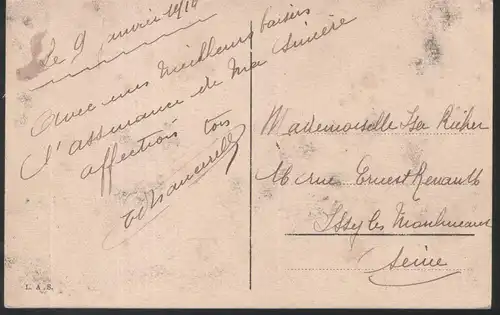 Le 9 janvier 1910
Avec mes meilleurs baisers
l'assurance de ma sincère
affection ton
Mademoiselle Isa Richer
rue Ernest Renault
Issy les Moulineaux
Seine
L. A. S.